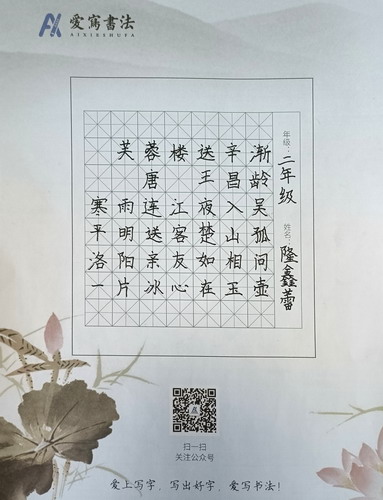 愛寫書法
AIXIESHUFA
芙蓉楼送辛渐
唐 王昌龄
寒雨连江夜入吴
平明送客楚山孤
洛阳亲友如相问
一片冰心在玉壶
年级：二年级 姓名：隆鑫蕾
扫一扫
关注公众号
爱上写字，写出好字，爱写书法！